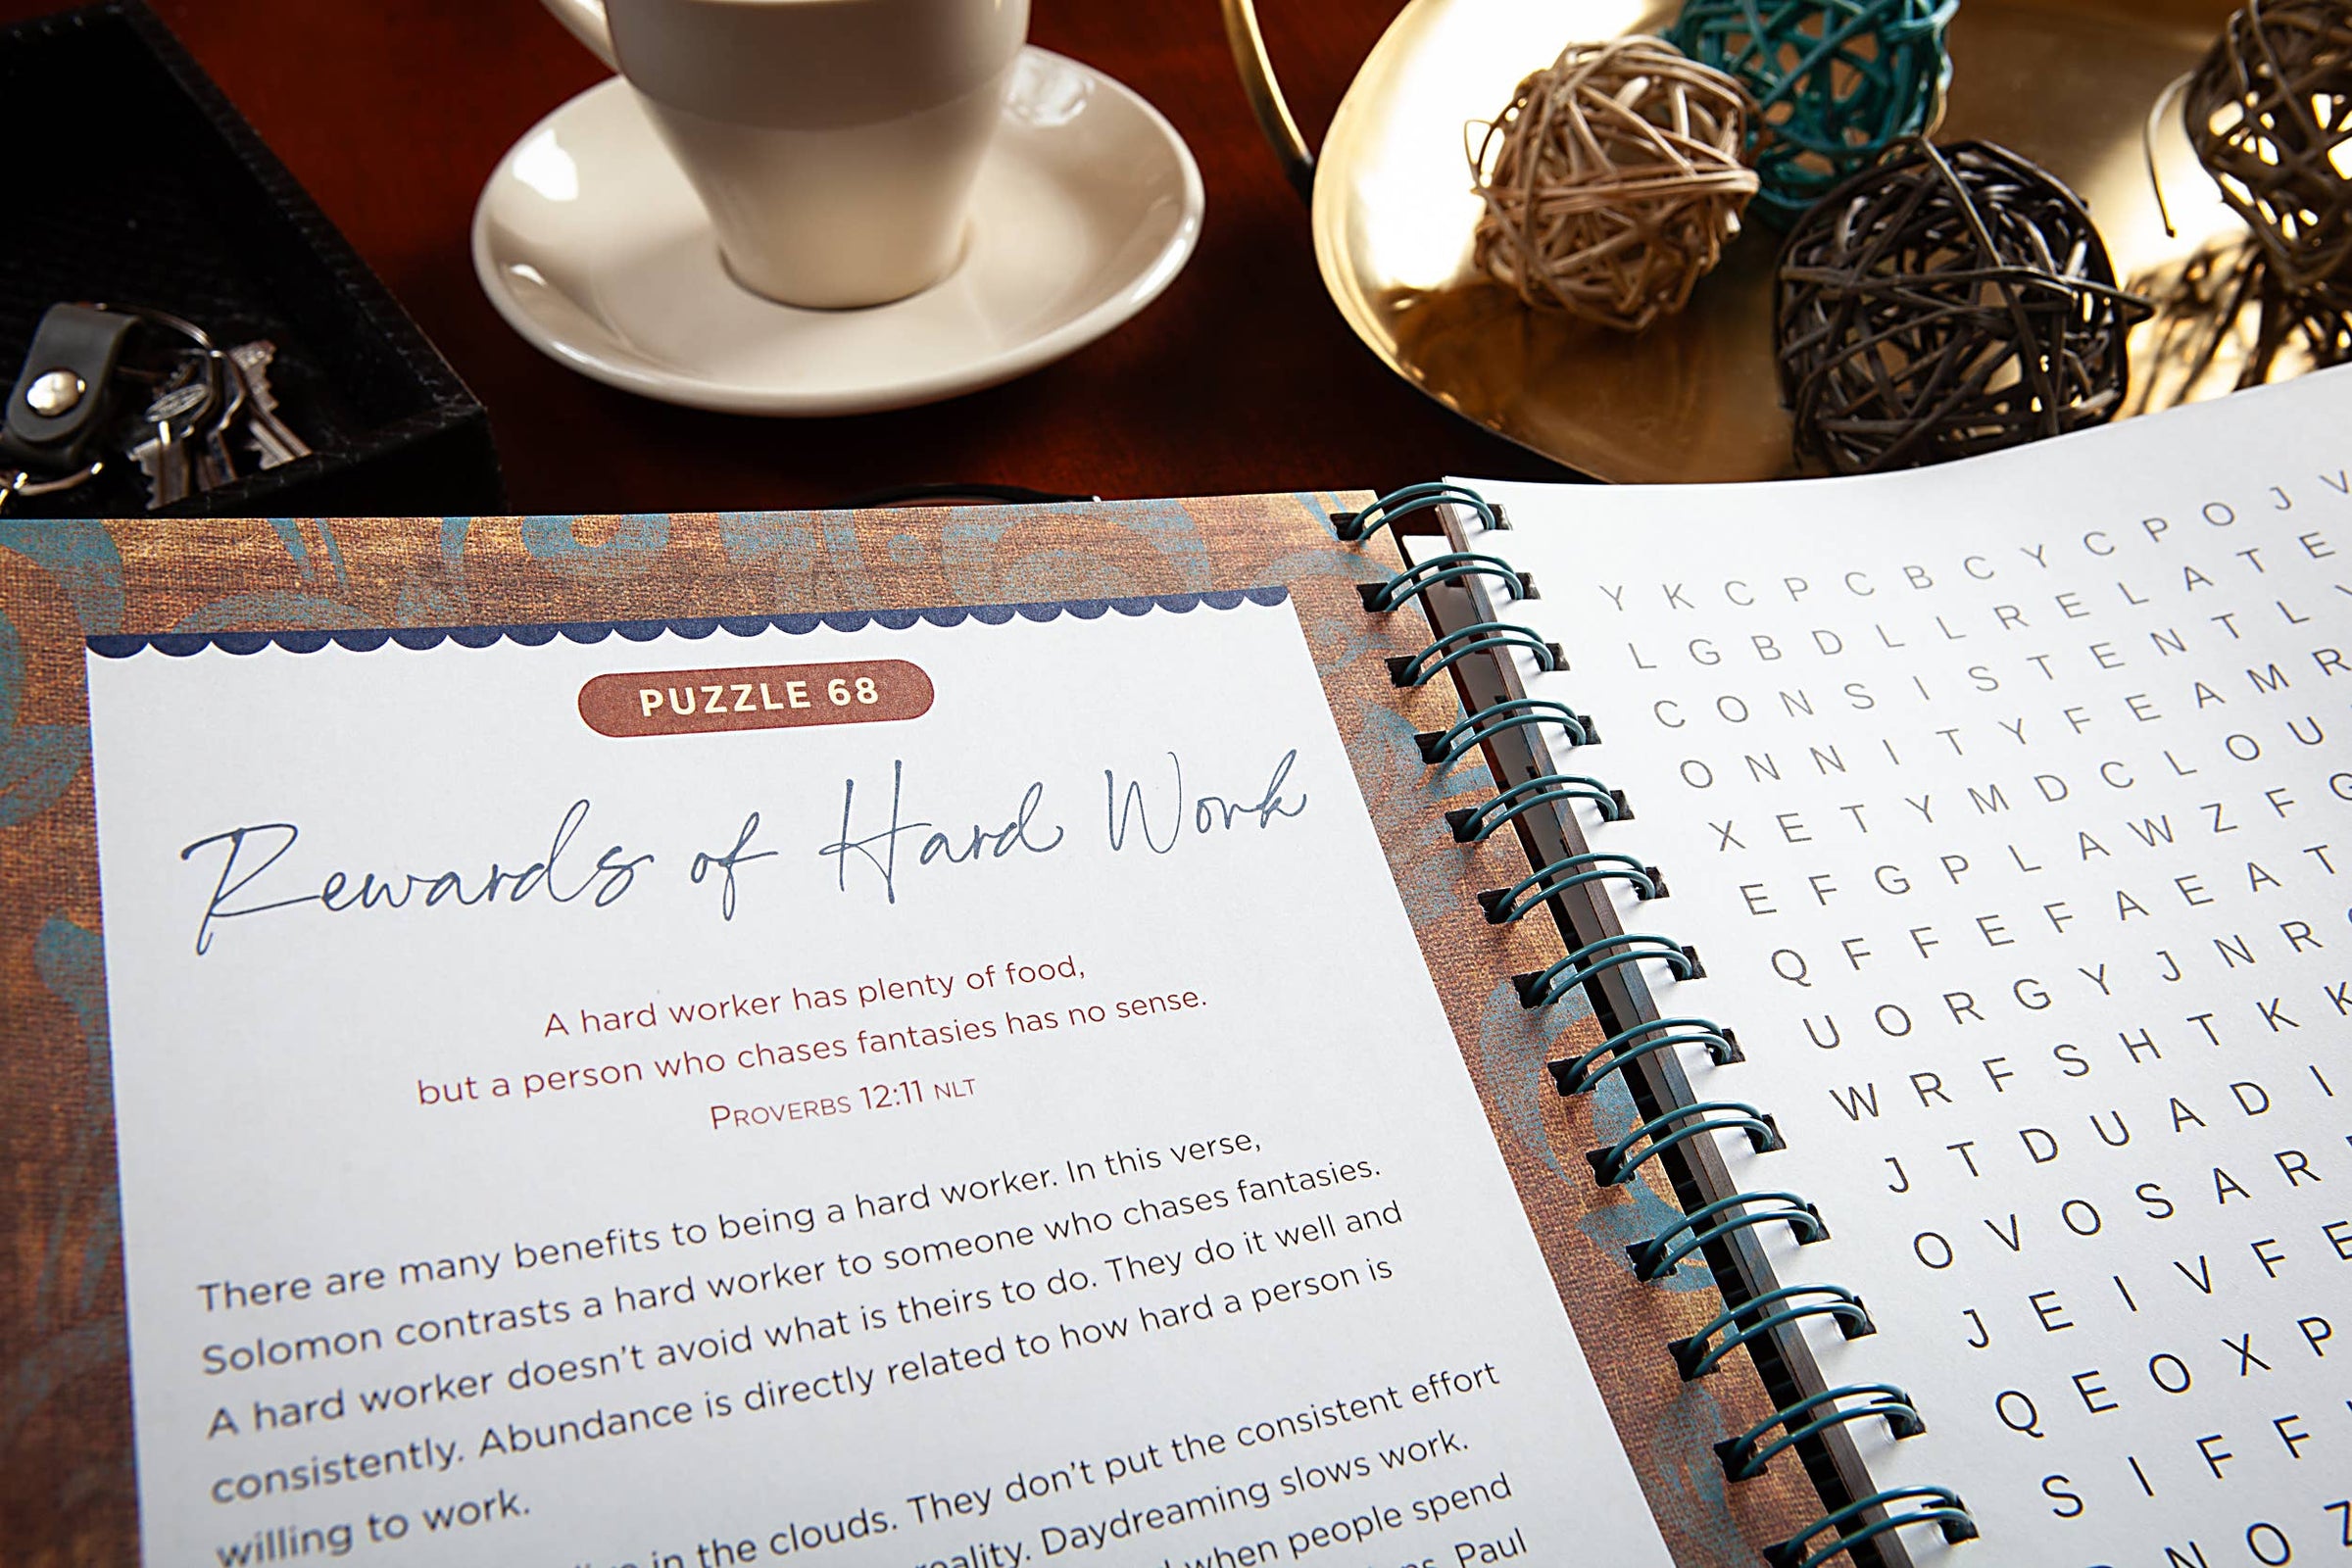 PUZZLE 68
Rewards of Hard Work
A hard worker has plenty of food,
but a person who chases fantasies has no sense.
PROVERBS 12:11 NLT
There are many benefits to being a hard worker. In this verse,
Solomon contrasts a hard worker to someone who chases fantasies.
A hard worker doesn't avoid what is theirs to do. They do it well and
consistently. Abundance is directly related to how hard a person is
willing to work.
in the clouds. They don't put the consistent effort
reality. Daydreaming slows work.
when people spend
Paul
Y K C P C B C Y C P O J V
L G B D L L R E L A T E
C O N S I S T E N T L Y
O N N I T Y F E A M R
X E T Y M D C L O U
E F G P L A W Z F G
Q F F E F A E A T
U O R G Y J N R
W R F S H T K K
J T D U A D I
O V O S A R
J E I V F E
Q E O X P
S I F F
N O Z